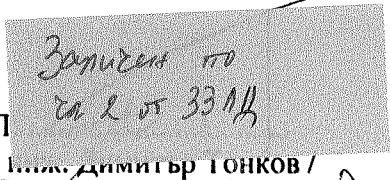 Заличен по
чл 2 от ЗЗЛД
инж. Димитър Тонков /